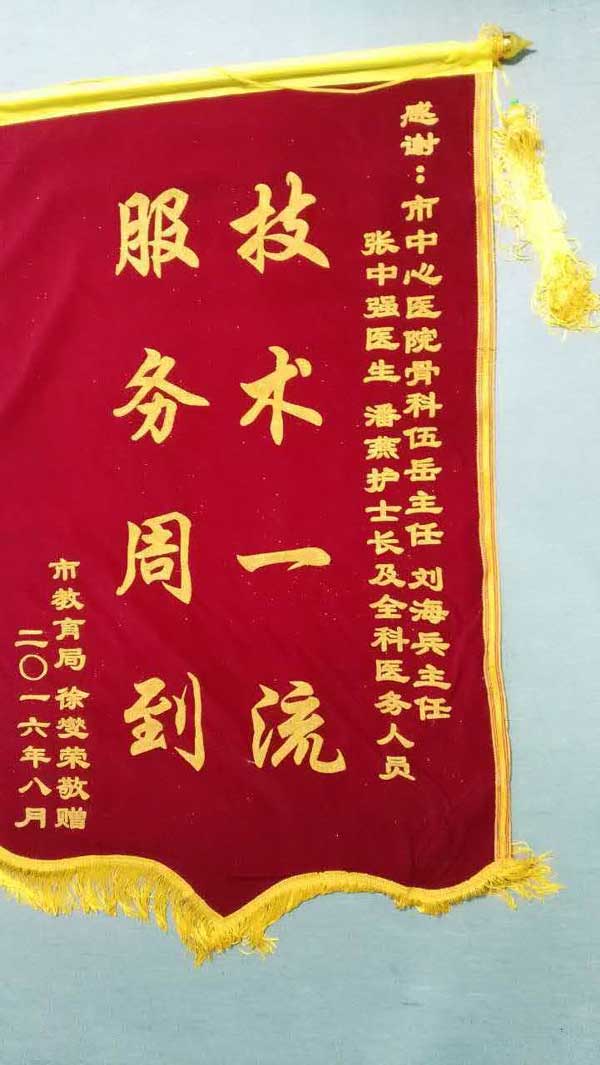 感谢：市中心医院骨科伍岳主任 刘海兵主任
张中强医生 潘燕护士长及全科医务人员
技术一流
服务周到
市教育局 徐燮荣敬赠
二〇一六年八月